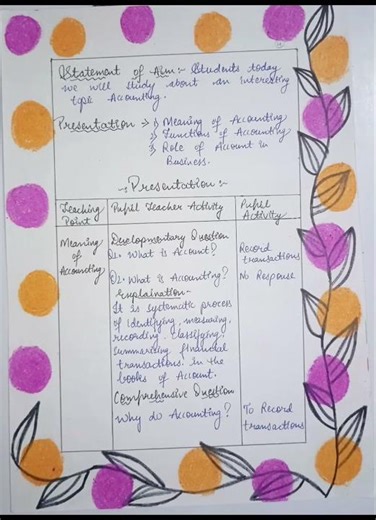 Statement of Aim :- Students today
we will study about an interesting
topic Accounting.
Presentation → 1) Meaning of Accounting
2) Functions of Accounting
3) Role of Account in
Business.
-: Presentation :-
Teaching Point
Pupil Teacher Activity
Pupil Activity
Meaning of Accounting
Developmentary Question
Q1. What is Account?
Record transactions
Q2. What is Accounting?
No Response
Explaination -
It is systematic process
of identifying, measuring,
recording, classifying,
summarising financial
transactions. In the
books of Account.
Comprehensive Question
Why do Accounting?
To Record transactions